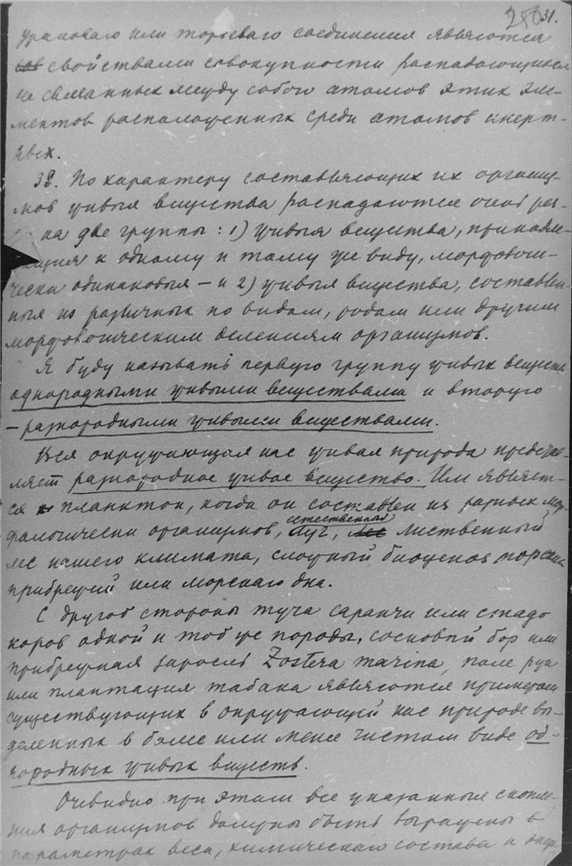 250 31.
уранового или ториеваго соединения являются
свойствами совокупности распадающихся
не связанных между собою атомов этих эле-
ментов расположенных среди атомов инерт-
ных.
32. По характеру составляющих их организ-
мов живыя вещества распадаются очень рез-
на две группы: 1) живыя вещества, принадле-
жащия к одному и тому же виду, морфологи-
чески одинаковыя – и 2) живыя вещества, составлен-
ныя из различных по видам, родам или другим
морфологическим делениям организмов.
Я буду называть первую группу живых веществ
однородными живыми веществами и вторую
– разнородными живыми веществами.
Вся окружающая нас живая природа представ-
ляет разнородное живое вещество. Им являет-
ся планктон, когда он составлен из разных мор-
фологически организмов, естественный луг, лиственный
лес нашего климата, сложный биоценоз морских
прибрежий или морскаго дна.
С другой стороны туча саранчи или стадо
коров одной и той же породы, сосновый бор или
прибрежная заросль Zostera marina, поле ржи
или плантация табака являются примерами
существующих в окружающей нас природе вы-
деленных в более или мене чистом виде од-
нородных живых веществ.
Очевидно при этом все указанные скопле-
ния организмов должны быть выражены в
параметрах веса, химическаго состава и энер-